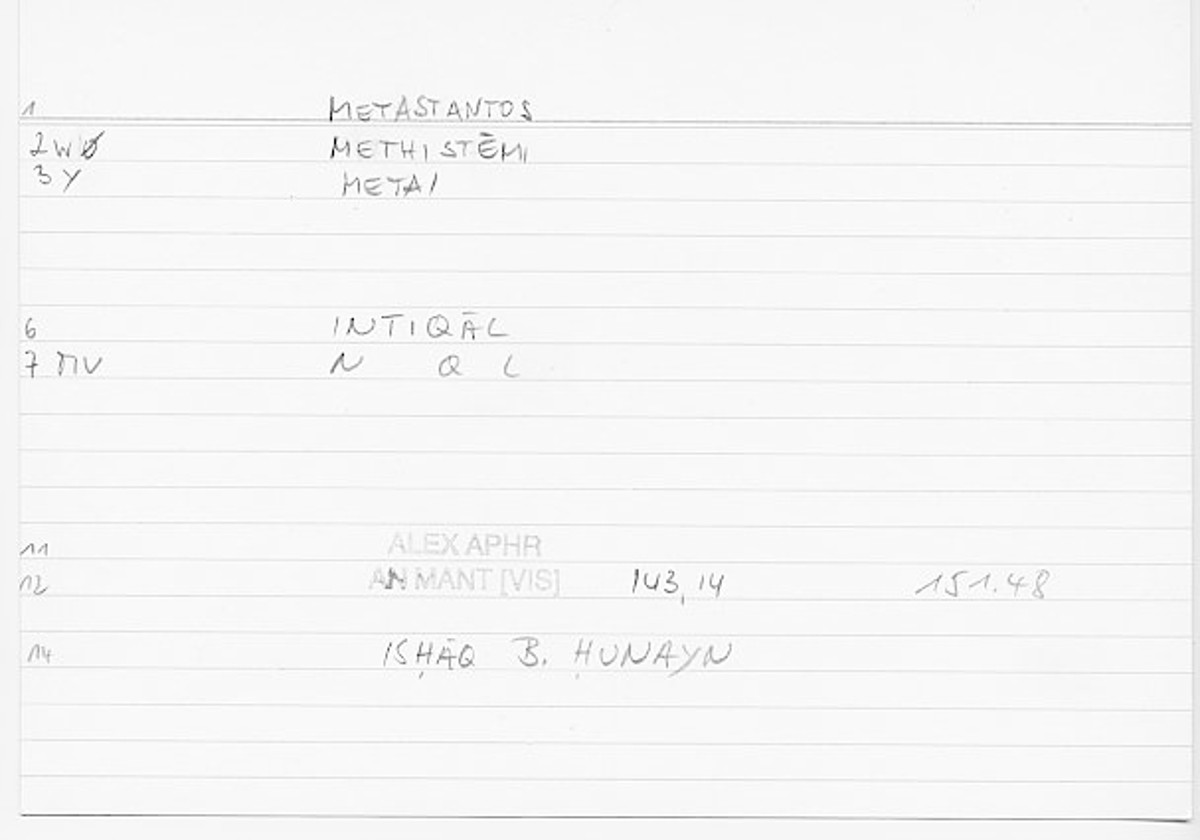 1 METASTANTOS
2 WØ METHISTĒMI
3 Y METAI
6 INTIQĀL
7 MV N Q L
11 ALEX APHR
12 AN MANT [VIS] 143,14 151.48
14 ISḤĀQ B. ḤUNAYN